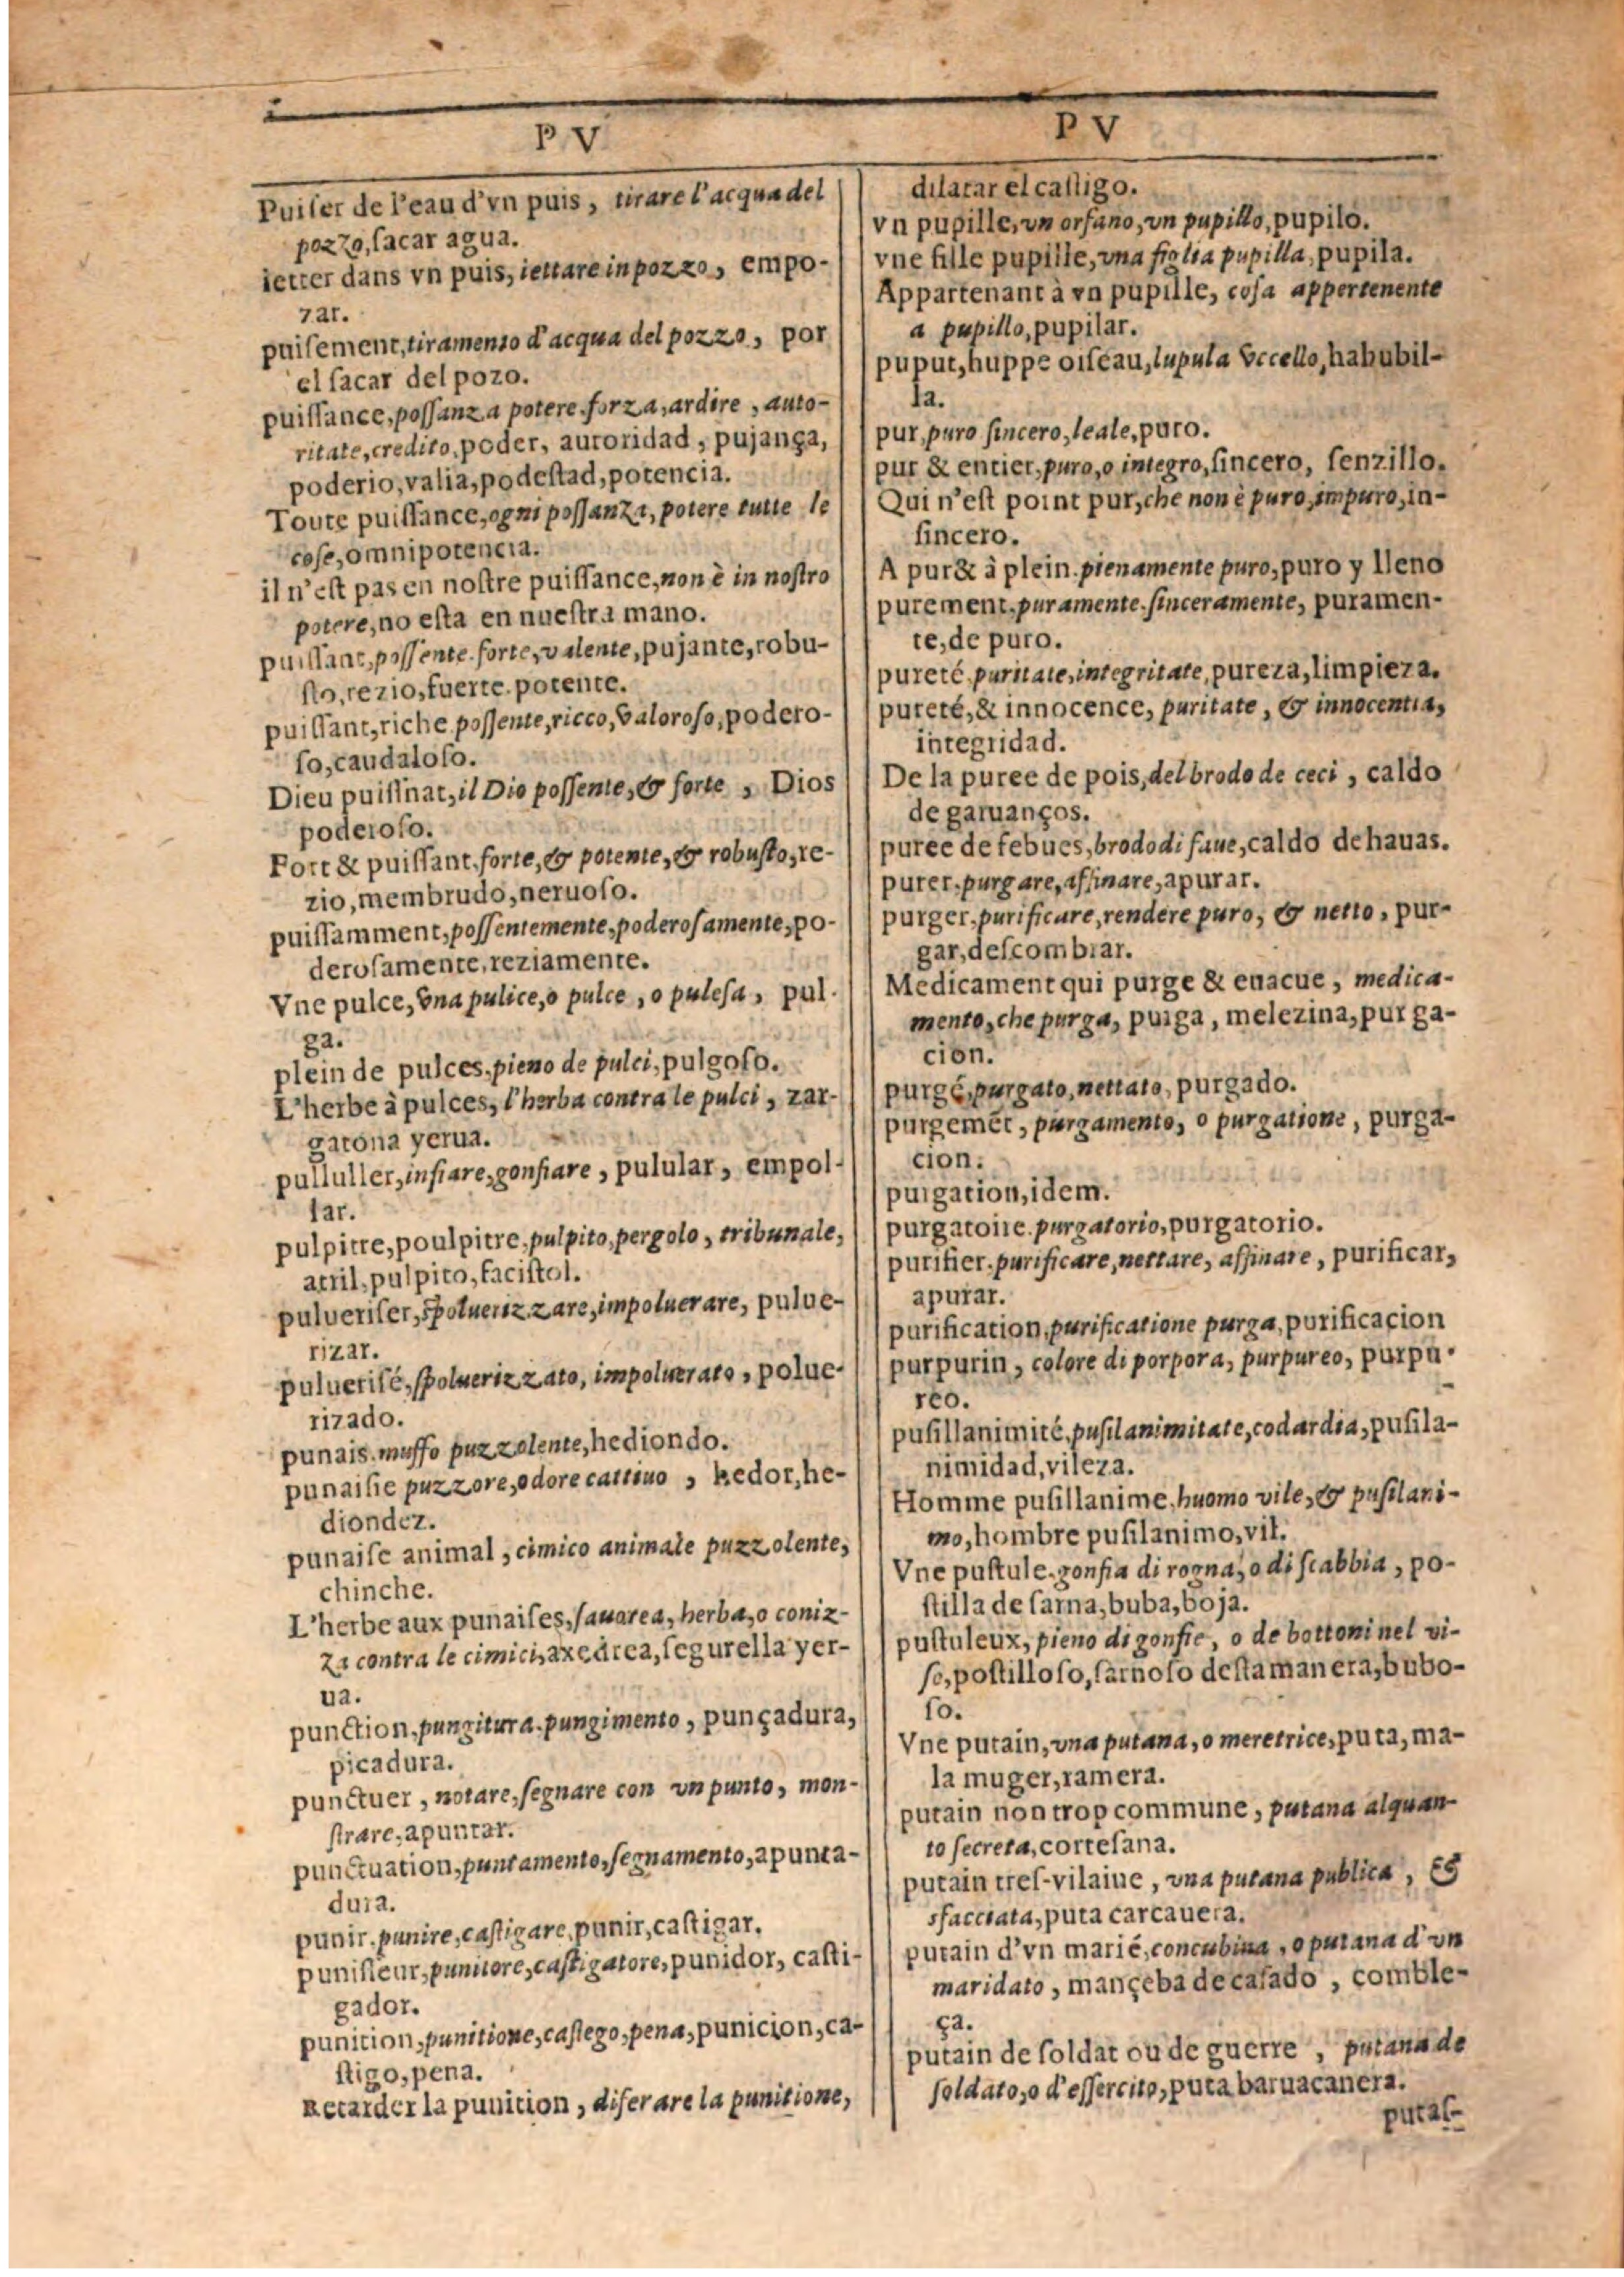 P V
Puiſer de l'eau d'vn puis, tirare l'acqua del
pozzo, ſacar agua.
ietter dans vn puis, iettare in pozzo, empo-
zar.
puiſement, tiramento d'acqua del pozzo, por
el ſacar del pozo.
puiſſance, poſſanza potere forza, ardire, auto-
ritate, credito, poder, autoridad, pujança,
poderio, valia, podeſtad, potencia.
Toute puiſſance, ogni poſſanza, potere tutte le
coſe, omnipotencia.
il n'eſt pas en noſtre puiſſance, non è in noſtro
potere, no eſta en nueſtra mano.
puiſſant, poſſente. forte, valente, pujante, robu-
ſto, rezio, fuerte. potente.
puiſſant, riche poſſente, ricco, valoroſo, podero-
ſo, caudaloſo.
Dieu puiſſnat, il Dio poſſente, & forte, Dios
poderoſo.
Fort & puiſſant, forte, & potente, & robuſto, re-
zio, membrudo, neruoſo.
puiſſamment, poſſentemente, poderoſamente, po-
deroſamente, reziamente.
Vne pulce, vna pulice, o pulce, o puleſa, pul-
ga.
plein de pulces, pieno de pulci, pulgoſo.
L'herbe à pulces, l'herba contra le pulci, zar-
gatona yerua.
pulluller, inſiare, gonfiare, pulular, empol-
lar.
pulpitre, poulpitre, pulpito, pergolo, tribunale,
atril, pulpito, faciſtol.
pulveriſer, ſpoluerizzare, impoluerare, pulue-
rizar.
pulueriſé, ſpoluerizzato, impoluerato, polue-
rizado.
punais. muffo puzzolente, hediondo.
punaiſie puzzore, odore cattiuo, hedor, he-
diondez.
punaiſe animal, cimico animale puzzolente,
chinche.
L'herbe aux punaiſes, ſauorea, herba, o coniz-
za contra le cimici, axedrea, ſegurella yer-
ua.
punction, pungitura. pungimento, punçadura,
picadura.
punctuer, notare, ſegnare con vn punto, mon-
ſtrare, apuntar.
punctuation, puntamento, ſegnamento, apunta-
dura.
punir. punire, caſtigare, punir, caſtigar.
puniſſeur, punitore, caſtigatore, punidor, caſti-
gador.
punition, punitione, caſtego, pena, punicion, ca-
ſtigo, pena.
Retarder la punition, diferare la punitione,
P V
dilatar el caſtigo.
vn pupille, vn orfano, vn pupillo, pupilo.
vne fille pupille, vna figlia pupilla, pupila.
Appartenant à vn pupille, coſa appertenente
a pupillo, pupilar.
puput, huppe oiſeau, lupula vccello, habubil-
la.
pur, puro ſincero, leale, puro.
pur & entier, puro, o integro, ſincero, ſenzillo.
Qui n'eſt point pur, che non è puro, impuro, in-
ſincero.
A pur & à plein. pienamente puro, puro y lleno
purement. puramente. ſinceramente, puramen-
te, de puro.
pureté. puritate, integritate, pureza, limpieza.
pureté, & innocence, puritate, & innocentia,
integridad.
De la puree de pois, del brodo de ceci, caldo
de garuanços.
puree de febues, brodo di faue, caldo de hauas.
purer. purgare, affinare, apurar.
purger, purificare, rendere puro, & netto, pur-
gar, deſcombrar.
Medicament qui purge & euacue, medica-
mento, che purga, purga, melezina, purga-
cion.
purgé, purgato, nettato, purgado.
purgemēt, purgamento, o purgatione, purga-
cion.
purgation, idem.
purgatoire. purgatorio, purgatorio.
purifier. purificare, nettare, affinare, purificar,
apurar.
purification, purificatione purga, purificacion
purpurin, colore di porpora, purpureo, purpu-
reo.
puſillanimité, puſilanimitate, codardia, puſila-
nimidad, vileza.
Homme puſillanime, huomo vile, & puſilani-
mo, hombre puſilanimo, vil.
Vne puſtule. gonfia di rogna, o di ſcabbia, po-
ſtilla de ſarna, buba, boja.
puſtuleux, pieno di gonfie, o de bottoni nel vi-
ſo, poſtilloſo, ſarnoſo deſta manera, bubo-
ſo.
Vne putain, vna putana, o meretrice, puta, ma-
la muger, ramera.
putain non trop commune, putana alquan-
to ſecreta, corteſana.
putain treſ-vilaiue, vna putana publica, &
sfacciata, puta carcauera.
putain d'vn marié, concubina, o putana d'vn
maridato, mançeba de caſado, comble-
ça.
putain de ſoldat ou de guerre, putana de
ſoldato, o d'eſſercito, puta baruacanera.
putaſ-